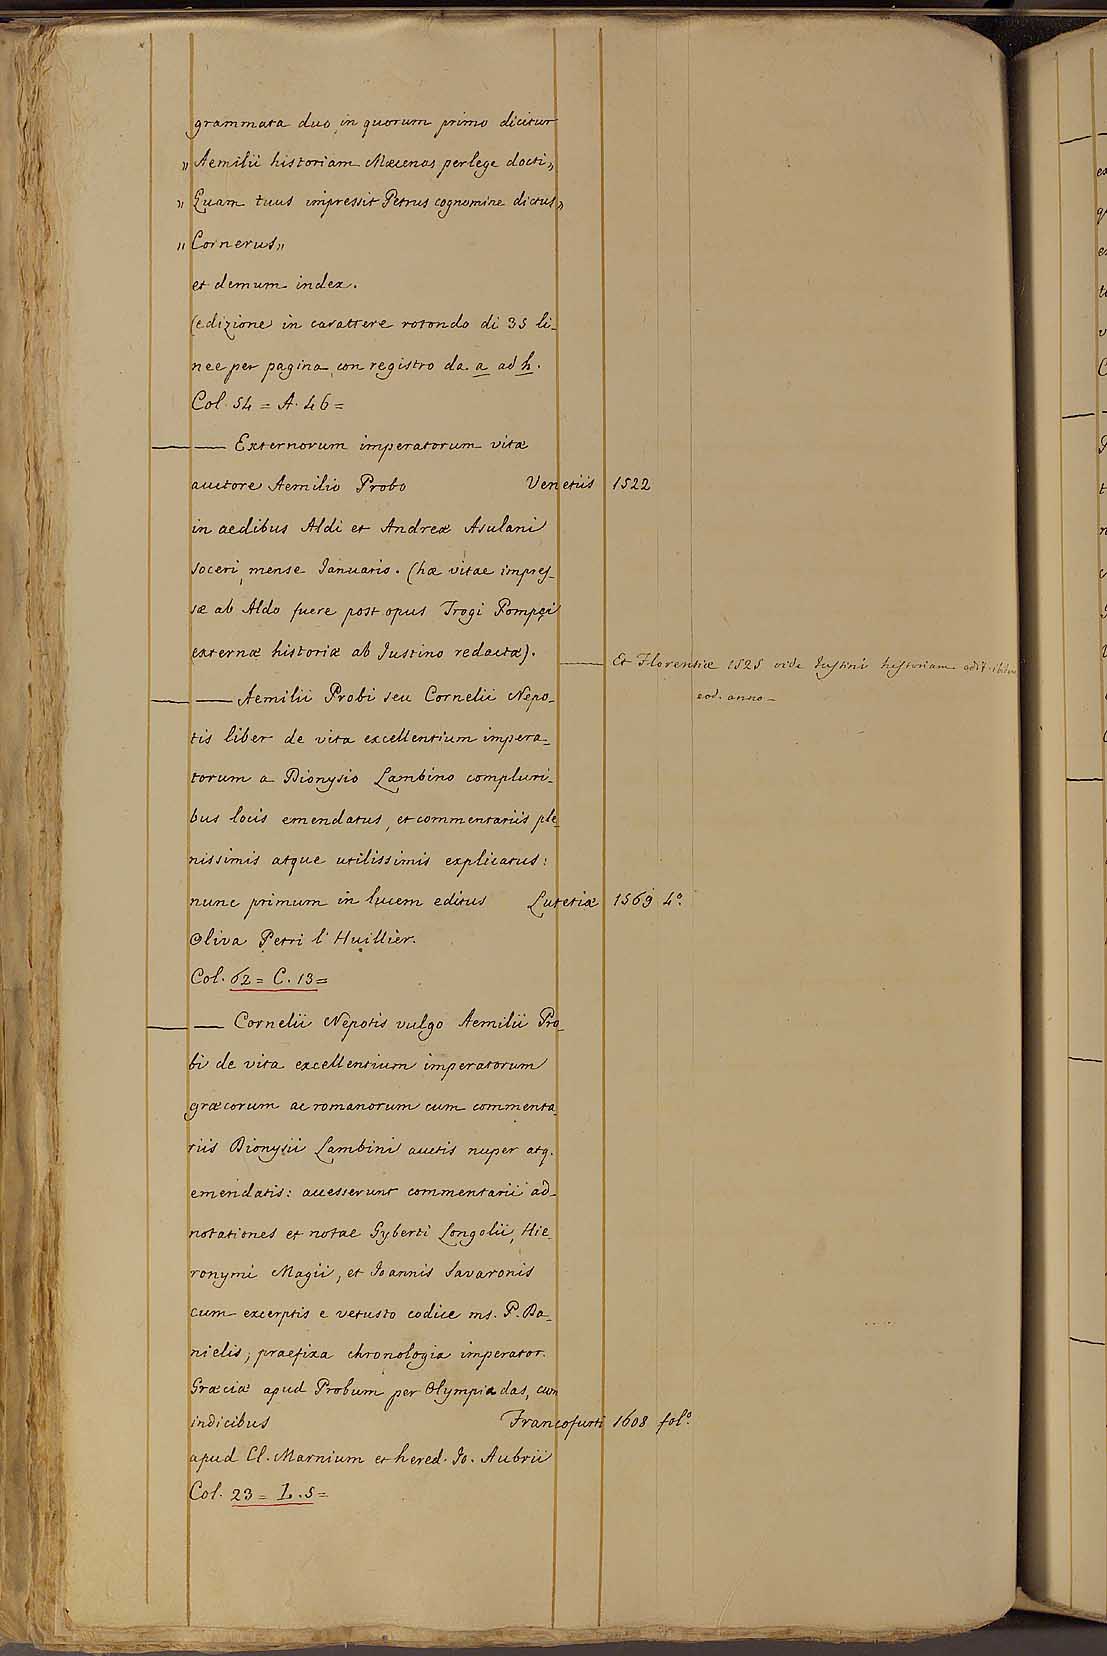 grammata duo, in quorum primo dicitur
„ Aemilii historiam Mæcenas perlege docti„
„ Quam tuus impressit Petrus cognomine dictus„
„ Cornerus„
et demum index.
(edizione in carattere rotondo di 35 li-
nee per pagina, con registro da a ad h.
Col. 54 = A. 46 =
— — Externorum imperatorum vitæ
auctore Aemilio Probo Venetiis 1522
in aedibus Aldi et Andreæ Asulani
soceri, mense Ianuario. (hæ vitae impres-
sæ ab Aldo fuere post opus Trogi Pompei
externæ historiæ ab Iustino redactæ).
— Et Florentiæ 1525 vide Iustini historiam edit. ibidem
eod. anno -
— — Aemilii Probi seu Cornelii Nepo-
tis liber de vita excellentium impera-
torum a Dionysio Lambino compluri-
bus locis emendatus, et commentariis ple-
nissimis atque utilissimis explicatus:
nunc primum in lucem editus Lutetiæ 1569 4.°
Oliva Petri l'Huillier.
Col. 62 = C. 13 =
— — Cornelii Nepotis vulgo Aemilii Pro-
bi de vita excellentium imperatorum
græcorum ac romanorum cum commenta-
riis Dionysii Lambini auctis nuper atq.
emendatis: accesserunt commentarii ad-
notationes et notae Gyberti Longolii, Hie-
ronymi Magii, et Ioannis Savaronis
cum excerptis e vetusto codice ms. P. Da-
nielis; praefixa chronologia imperator.
Græciæ apud Probum per Olympiadas, cum
indicibus Francofurti 1608 fol.°
apud Cl. Marnium et hered. Io. Aubrii
Col. 23 = L. 5 =